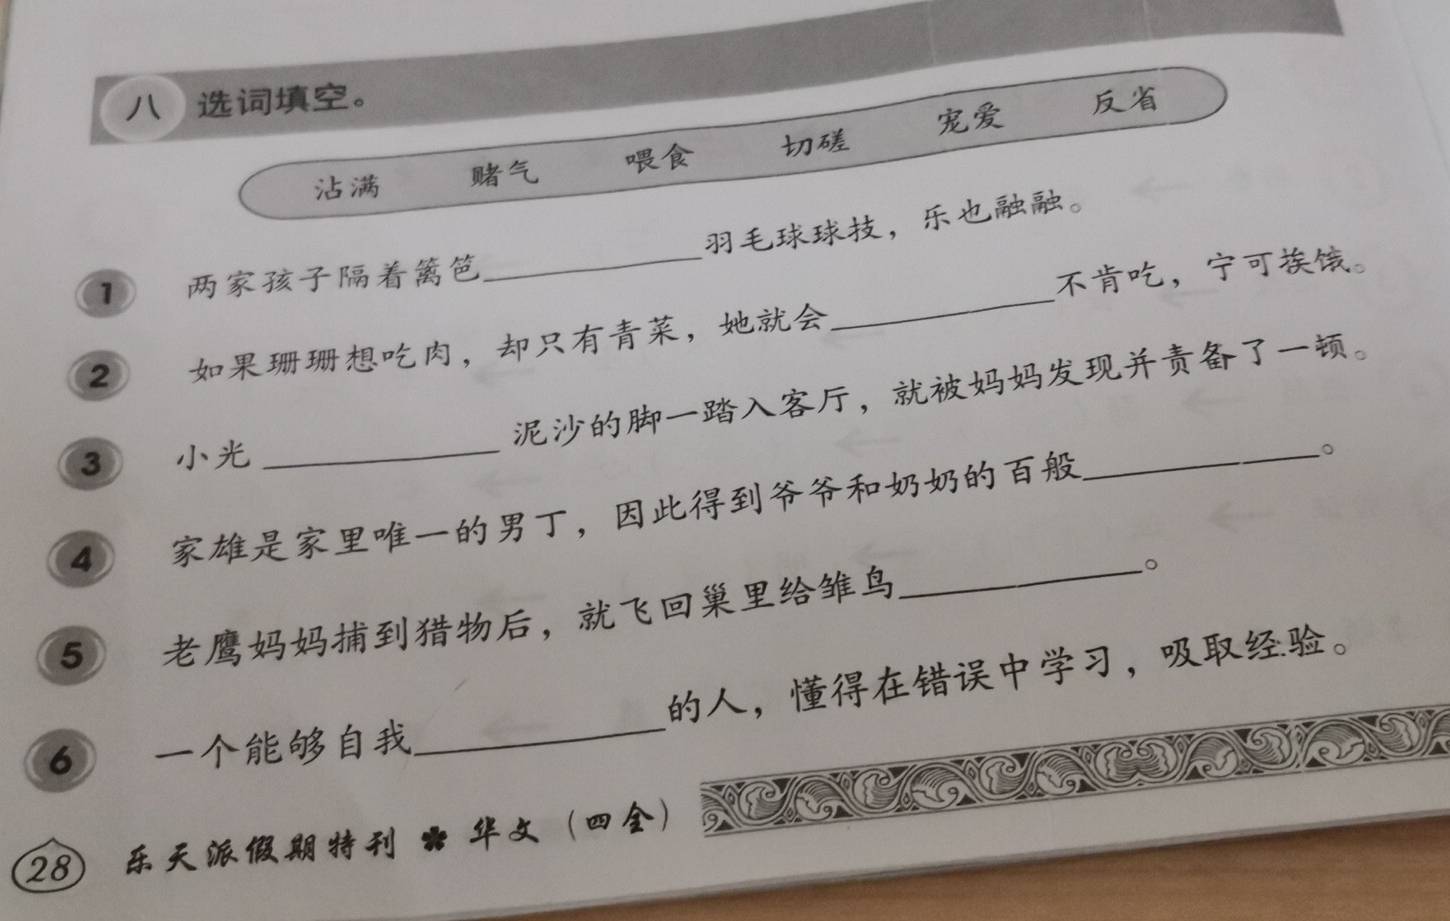 八 选词填空。
沾满 赌气 喂食 切磋 宠爱 反省
1 两家孩子隔着篱笆__________羽毛球球技，乐也融融。
2 如果珊珊想吃肉，却只有青菜，她就会__________不肯吃，宁可挨饿。
3 小光__________泥沙的脚一踏入客厅，就被妈妈发现并责备了一顿。
4 家雄是家里唯一的男丁，因此得到爷爷和奶奶的百般__________。
5 老鹰妈妈捕到猎物后，就飞回巢里给雏鸟__________。
6 一个能够自我__________的人，懂得在错误中学习，吸取经验。
28 乐天派假期特刊 * 华文（四全）